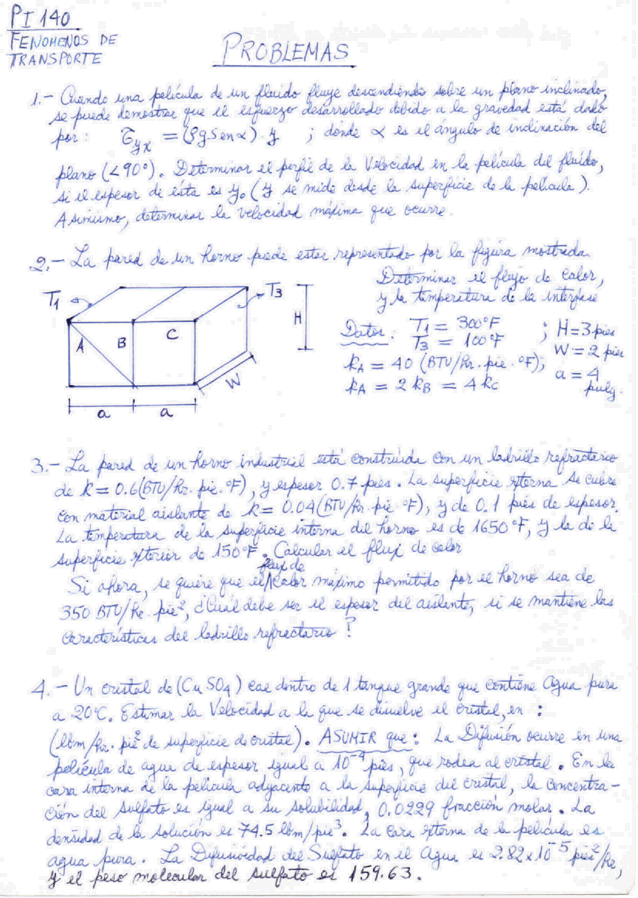 PI 140
FENOMENOS DE
TRANSPORTE
PROBLEMAS
1.- Cuando una película de un fluido fluye descendiendo sobre un plano inclinado,
se puede demostrar que el esfuerzo desarrollado debido a la gravedad está dado
por: τyx = (ρg Sen α) . y ; donde α es el ángulo de inclinación del
plano (<90°). Determinar el perfil de la Velocidad en la película del fluído,
si el espesor de ésta es y₀ (y se mide desde la superficie de la película).
Asimismo, determinar la velocidad máxima que ocurre.
2.- La pared de un horno puede estar representado por la figura mostrada.
Determinar el flujo de calor,
y la temperatura de la interfase
Datos: T1 = 300°F ; H=3 pies
T3 = 100°F W = 2 pies
kA = 40 (BTU/Hr. pie. °F); a = 4
kA = 2 kB = 4 kC pulg.
T1
T3
H
A B C
W
a a
3.- La pared de un horno industrial está construída con un ladrillo refractario
de k = 0.6 (BTU/Hr. pie. °F), y espesor 0.7 pies. La superficie externa se cubre
con material aislante de k = 0.04 (BTU/Hr. pie. °F), y de 0.1 pies de espesor.
La temperatura de la superficie interna del horno es de 1650°F, y la de la
superficie exterior de 150°F. Calcular el flux de calor
flux de
Si ahora, se quiere que el calor máximo permitido por el horno sea de
350 BTU/Hr. pie², ¿Cuál debe ser el espesor del aislante, si se mantiene las
características del ladrillo refractario?
4.- Un cristal de (CuSO4) cae dentro de 1 tanque grande que contiene Agua pura
a 20°C. Estimar la Velocidad a la que se disuelve el cristal, en :
(lbm/Hr. pie² de superficie de cristal). ASUMIR que: La Difusión ocurre en una
película de agua de espesor igual a 10⁻⁴ pies, que rodea al cristal. En la
cara interna de la película adyacente a la superficie del cristal, la concentra-
ción del sulfato es igual a su solubilidad, 0.0229 fracción molar. La
densidad de la solución es 74.5 lbm/pie³. La cara externa de la película es
agua pura. La Difusividad del Sulfato en el Agua es 2.82x10⁻⁵ pies²/Hr,
y el peso molecular del sulfato es 159.63.